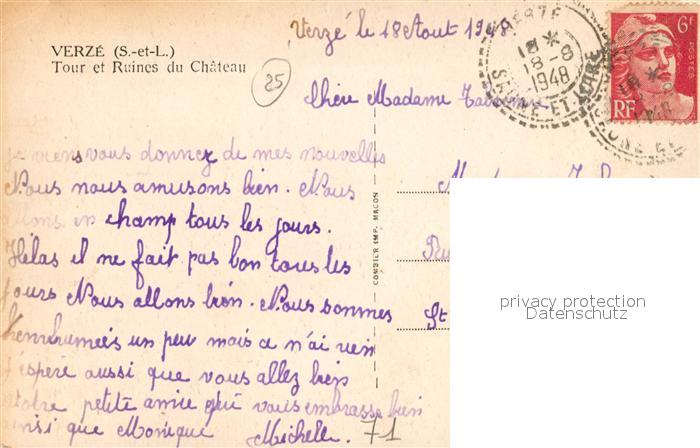 Verzé le 18 Aout 1948
VERZÉ (S.-et-L.)
Tour et Ruines du Château
25
VERZÉ
18 *
18-8
1948
SAÔNE-ET-LOIRE
6F
POSTES
RF
Chère Madame
je viens vous donnez de mes nouvelles
Nous nous amusons bien. Nous
allons en champ tous les jours.
Hélas il ne fait pas bon tous les
jours Nous allons bien. Nous sommes
enrhumées un peu mais ce n'ai rien
J'espère aussi que vous allez bien
votre petite amie qui vous embrasse bien
ainsi que Monique Michelle.
71
COMBIER IMP. MACON
St
privacy protection
Datenschutz